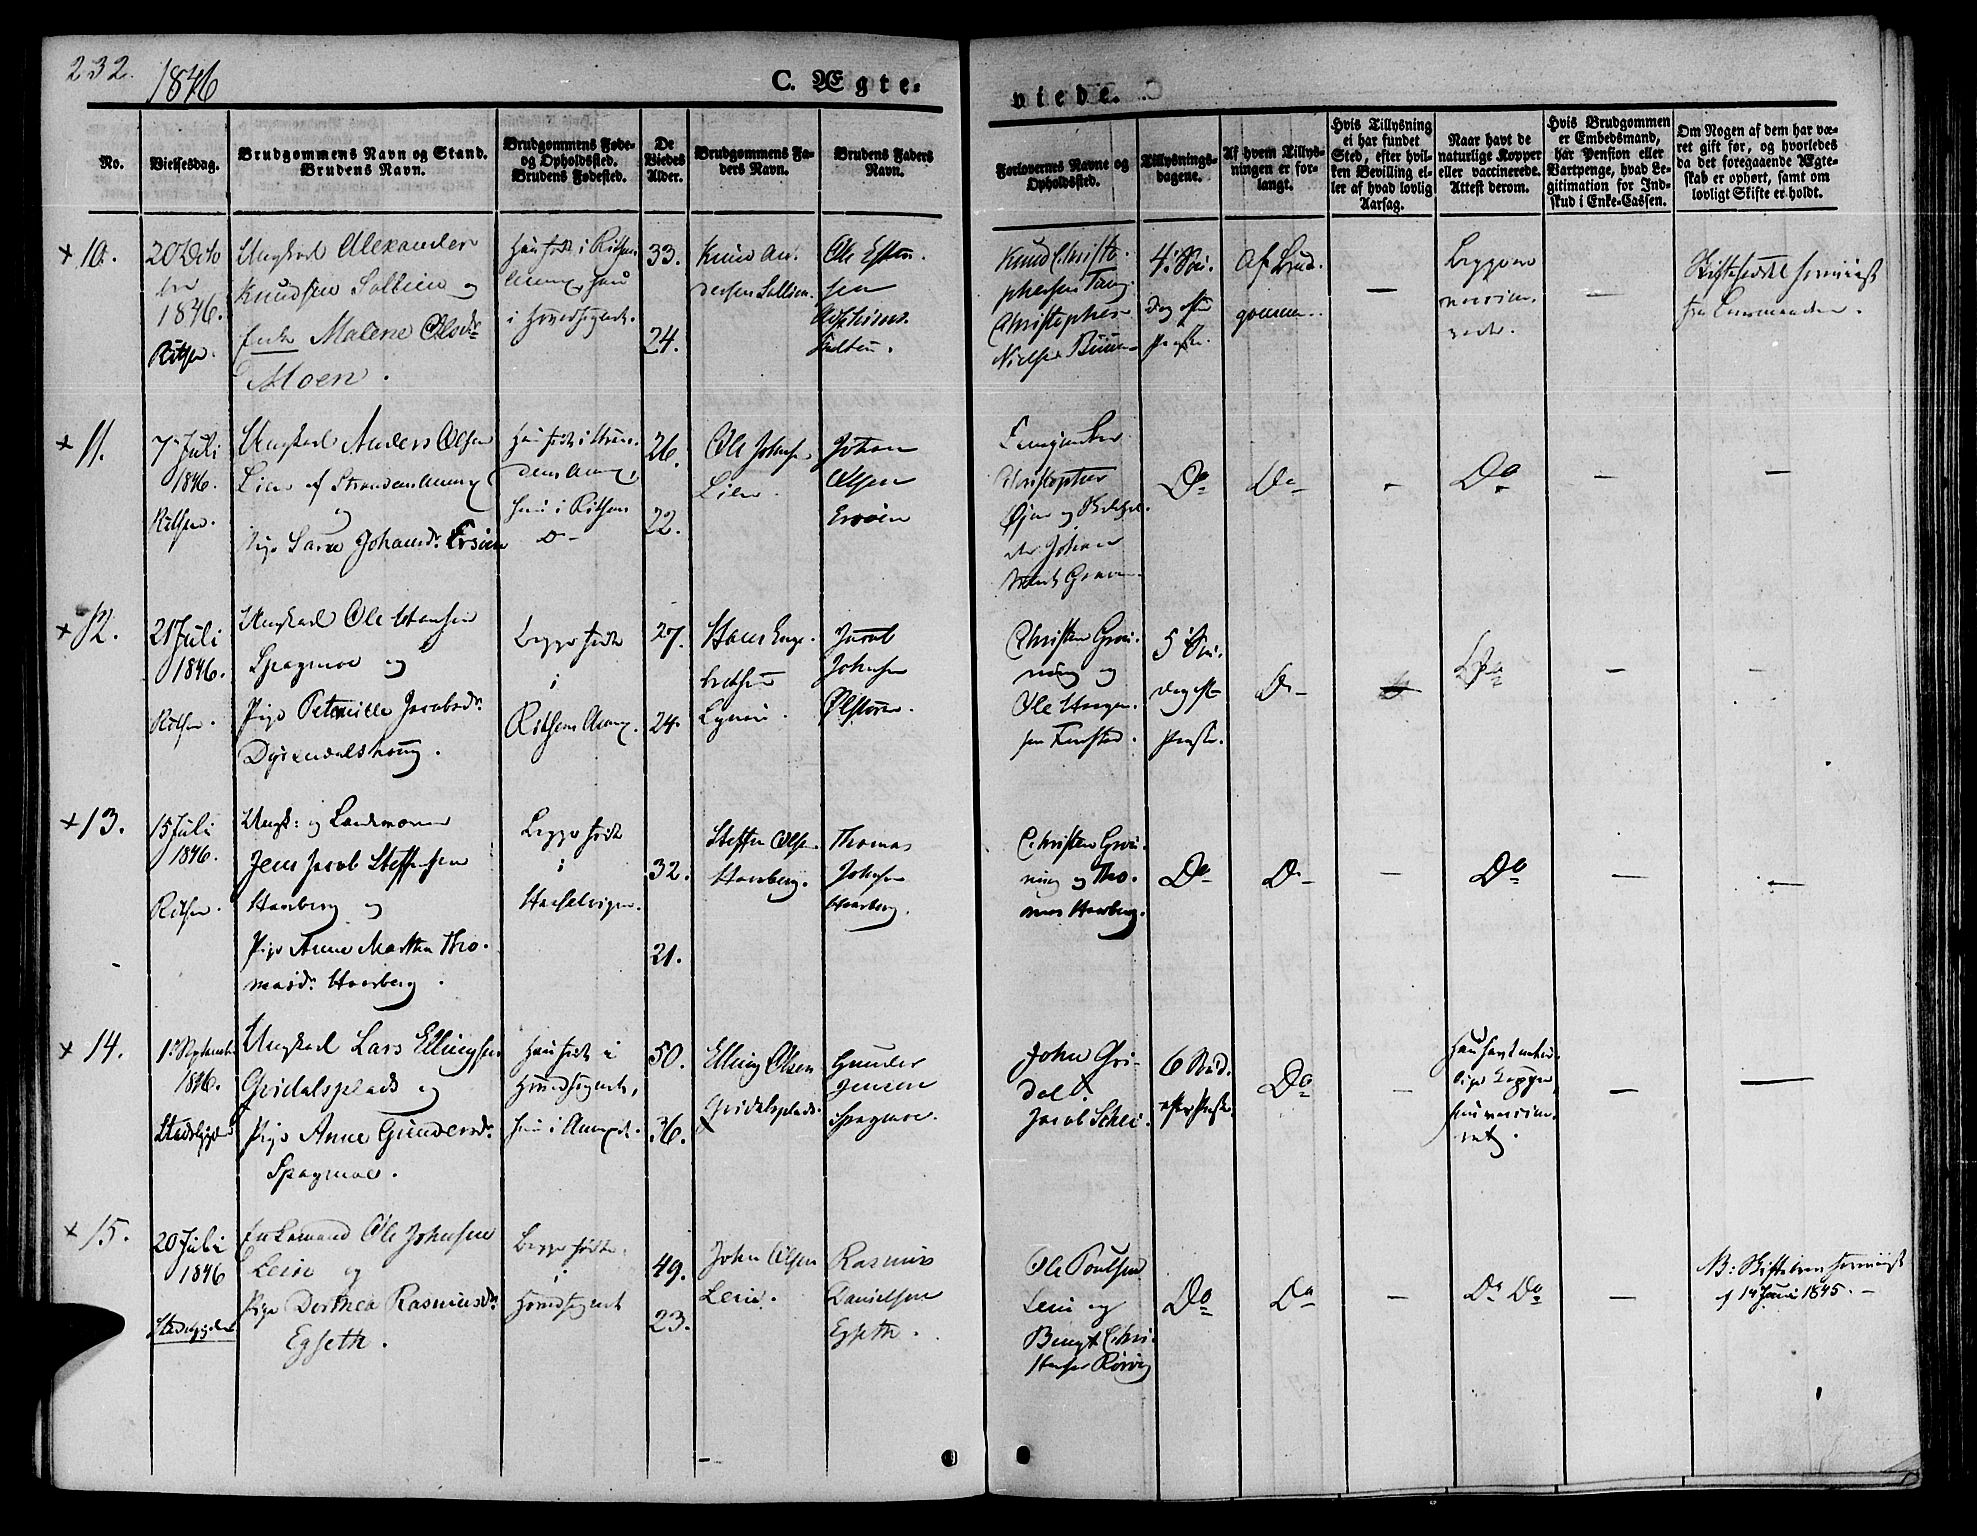 232. 1846
C. Ægte-
viede.
No.
Vielsesdag.
Brudgommens Navn og Stand.
Brudens Navn.
Brudgommens Føde-
og Opholdssted.
Brudens Fødested.
De
Viedes
Alder.
Brudgommens Fa-
ders Navn.
Brudens Faders
Navn.
Forlovernes Navne og
Opholdssted.
Tillysnings-
dagene.
Af hvem Tillys-
ningen er for-
langt.
Hvis Tillysning
ei har fundet
Sted, efter hvil-
ken Bevilling el-
ler af hvad lovlig
Aarsag.
Naar havt de
naturlige Kopper
eller vaccinerede.
Attest derom.
Hvis Brudgommen
er Embedsmand,
har Pension eller
Vartpenge, hvad Le-
gitimation for Ind-
skud i Enke-Cassen.
Om Nogen af dem har væ-
ret gift før, og hvorledes
da det foregaaende Ægte-
skab er ophørt, samt om
lovligt Skifte er holdt.
+ 10.
20
1846.
Ritsen.
Ungkarl Alexander
Knudsen Sollien og
Enke Malene Olsdr
Moen.
Han født i Ritsens
i Hovedsognet.
33.
24.
Knud An-
dersen Sollien.
Ole
sen
Knud Christo-
phersen
Christopher
Nielsen
4. Søn-
dag efter
Paaske.
Af Brud-
gommen.
—
Begge
—
fra Lensmanden.
+ 11.
7 Juli
1846.
Ritsen.
Ungkarl Anders Olsen
Lien af Strandens Annex
og
Pige Sara Johansdr
Han født i Stran-
dens Annex,
hun i Ritsens
Do
26.
22.
Ole Johnsen
Lien.
Johan
Olsen
Christopher
Øien og
Johan
Do
Do
-
Do
—
—
+ 12.
21 Juli
1846.
Ritsen.
Ungkarl Ole Hansen
Spagmoe og
Pige Peternille Jacobsdr
Dyrendalshoug.
Begge født
i
Ritsens Annex.
27.
24.
Hans Enge-
bretsen
Jacob
Johnsen
Christen Grøn-
ning og
Ole Haagen-
sen
5 Søn-
dag efter
Paaske.
Do
Do
—
—
+ 13.
15 Juli
1846.
Ritsen.
Ungk: og Landmaaler
Jens Jacob Steffensen
Haarberg og
Pige Anne Martha Tho-
masdr Haarberg.
Begge født
i
Hasselvigen.
32.
21.
Steffen Olsen
Haarberg.
Thomas
Johnsen
Haarberg.
Christen Grøn-
ning og Tho-
mas Haarberg.
Do
Do
—
Do
—
—
+ 14.
1. September
1846.
Stadsbygden
Ungkarl Lars Ellingsen
Gridalsplads og
Pige Anne Gundersdr
Spagmoe.
Han født i
Hovedsognet,
hun i Annexet.
50.
36.
Elling Olsen
Gridalsplads.
Gunder
Jensen
Spagmoe.
John Gri-
dal.
Jacob Schei.
6 Sønd.
efter Paaske.
Do
—
Han havt natur-
lige Kopper,
hun vaccine-
ret.
—
—
+ 15.
20 Juli
1846
Stadsbygden
Enkemand Ole Johnsen
Lein og
Pige Dorthea Rasmusdr
Egseth.
Begge født
i
Hovedsognet
49.
23.
John Olsen
Lein.
Rasmus
Danielsen
Egseth.
Ole Poulsen
Lein og
Bengt Chri-
stensen Rørvig
Do
Do
—
Do Do
—
NB: Skiftebrev foreviist
af 14 Juni 1845. -